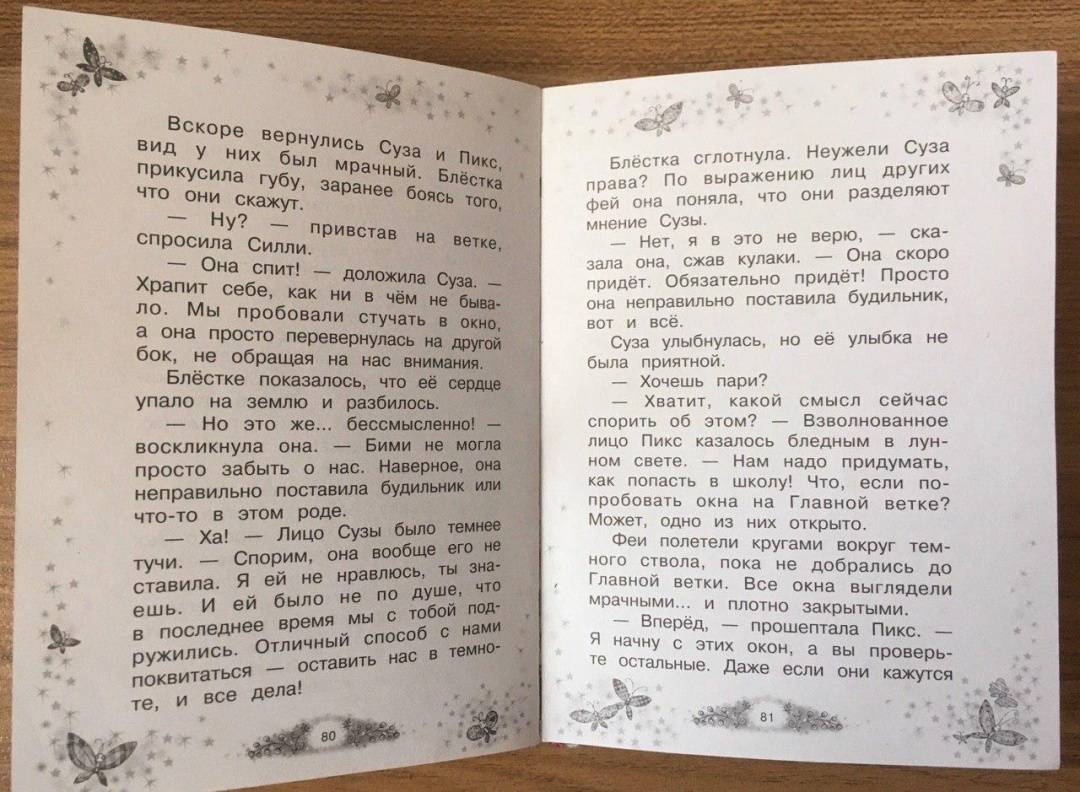 Вскоре вернулись Суза и Пикс,
вид у них был мрачный. Блёстка
прикусила губу, заранее боясь того,
что они скажут.
— Ну? — привстав на ветке,
спросила Силли.
— Она спит! — доложила Суза. —
Храпит себе, как ни в чём не быва-
ло. Мы пробовали стучать в окно,
а она просто перевернулась на другой
бок, не обращая на нас внимания.
Блёстке показалось, что её сердце
упало на землю и разбилось.
— Но это же... бессмысленно! —
воскликнула она. — Бими не могла
просто забыть о нас. Наверное, она
неправильно поставила будильник или
что-то в этом роде.
— Ха! — Лицо Сузы было темнее
тучи. — Спорим, она вообще его не
ставила. Я ей не нравлюсь, ты зна-
ешь. И ей было не по душе, что
в последнее время мы с тобой под-
ружились. Отличный способ с нами
поквитаться — оставить нас в темно-
те, и все дела!
80
Блёстка сглотнула. Неужели Суза
права? По выражению лиц других
фей она поняла, что они разделяют
мнение Сузы.
— Нет, я в это не верю, — ска-
зала она, сжав кулаки. — Она скоро
придёт. Обязательно придёт! Просто
она неправильно поставила будильник,
вот и всё.
Суза улыбнулась, но её улыбка не
была приятной.
— Хочешь пари?
— Хватит, какой смысл сейчас
спорить об этом? — Взволнованное
лицо Пикс казалось бледным в лун-
ном свете. — Нам надо придумать,
как попасть в школу! Что, если по-
пробовать окна на Главной ветке?
Может, одно из них открыто.
Феи полетели кругами вокруг тем-
ного ствола, пока не добрались до
Главной ветки. Все окна выглядели
мрачными... и плотно закрытыми.
— Вперёд, — прошептала Пикс. —
Я начну с этих окон, а вы проверь-
те остальные. Даже если они кажутся
81